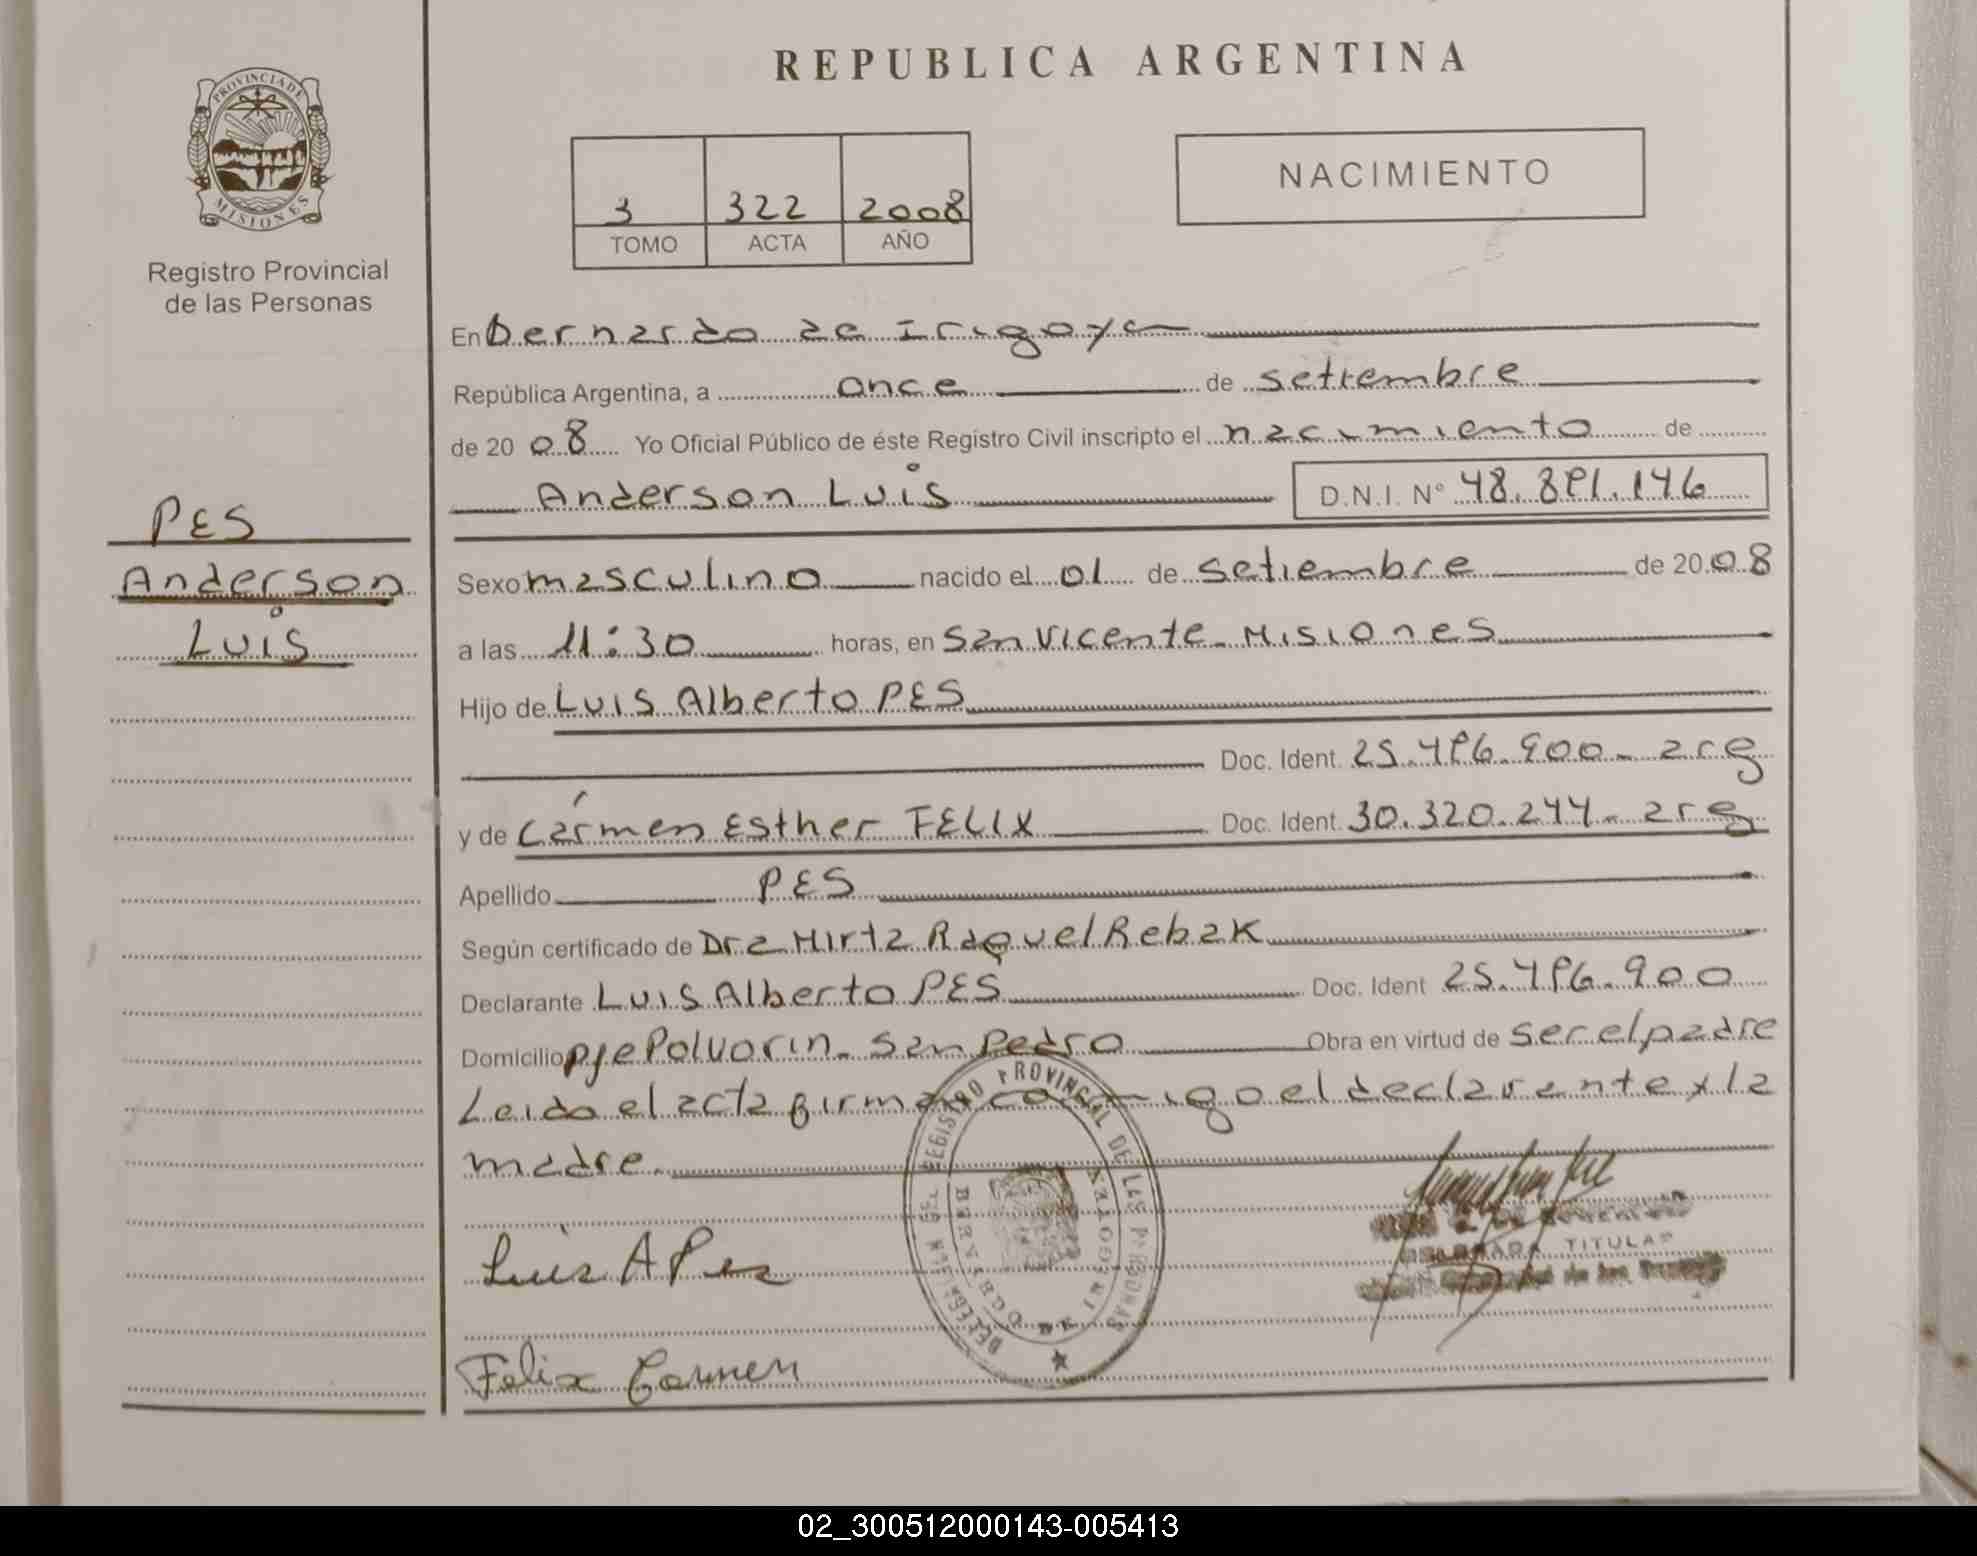 REPUBLICA ARGENTINA
PROVINCIA DE
MISIONES
Registro Provincial
de las Personas
3 322 2008
TOMO ACTA AÑO
NACIMIENTO
En Bernardo de Irigoyen
República Argentina, a once de setiembre
de 20 08 Yo Oficial Público de éste Registro Civil inscripto el nacimiento de
Anderson Luis D.N.I. N° 48.891.146
PES
Anderson
Luis
Sexo masculino nacido el 01 de setiembre de 20 08
a las 11:30 horas, en San Vicente - Misiones
Hijo de Luis Alberto PES
Doc. Ident. 25.496.900 - arg
y de Cármen Esther FELIX Doc. Ident. 30.320.244 - arg
Apellido PES
Según certificado de Dra Mirta Raquel Rebak
Declarante Luis Alberto PES Doc. Ident 25.496.900
Domicilio pje Polvorin - San Pedro Obra en virtud de ser el padre
Leido el acta firman conmigo el declarante y la
madre.
REGISTRO PROVINCIAL DE LAS PERSONAS
BERNARDO DE IRIGOYEN
TITULAR
Luis A Pes
Felix Carmen
02_300512000143-005413